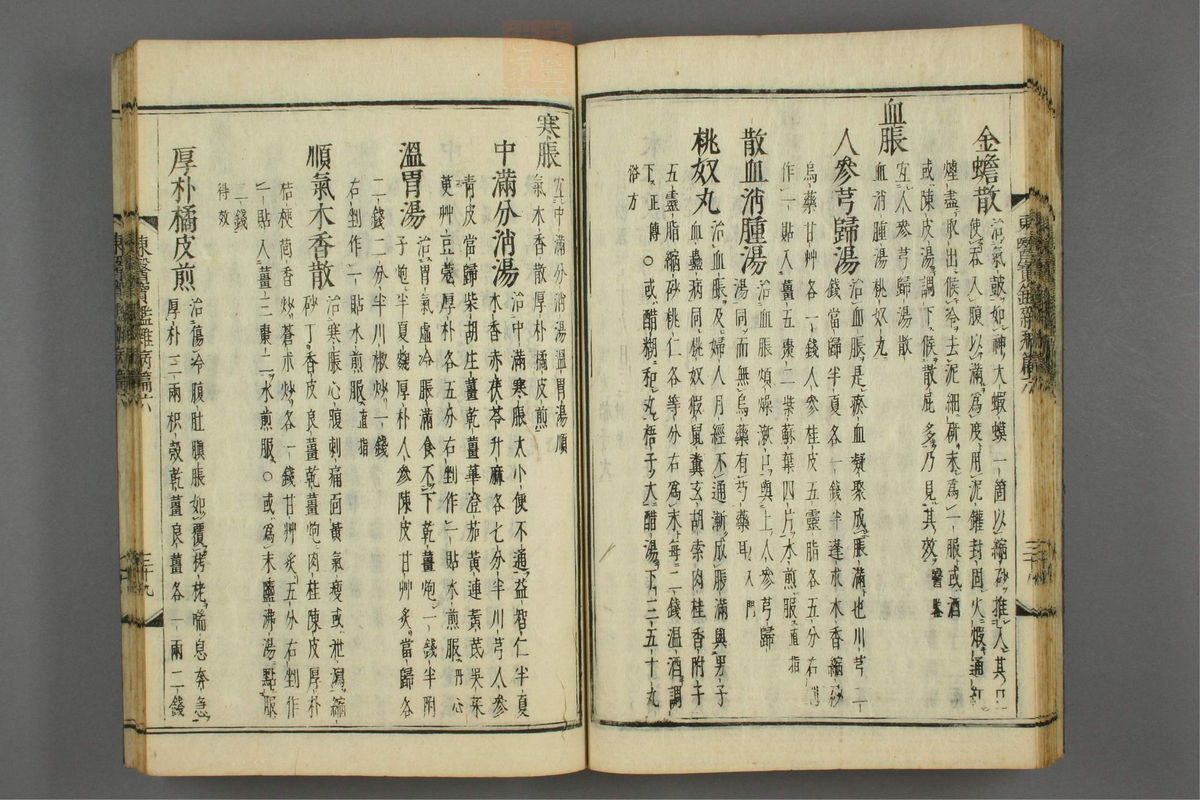 金蟾散 治氣鼓如神大蝦蟆一箇以縮砂推入其口
使吞入腹以滿爲度用泥鑵封固火煆通紅
煙盡取出候冷去泥細硏末爲一服或酒
或陳皮湯調下候散屁多乃見其效 醫鑑
血脹 宜人參芎歸湯散
血消腫湯桃奴丸
人參芎歸湯 治血脹是瘀血凝聚成脹滿也川芎二
錢當歸半夏各一錢半蓬朮木香縮砂
烏藥甘艸各一錢人參桂皮五靈脂各五分右
作一貼入薑五棗二紫蘇葉四片水煎服 直指
散血消腫湯 治血脹煩燥漱口與上人參芎歸
湯同而無烏藥有芍藥耳 入門
桃奴丸 治血脹及婦人月經不通漸成脹滿與男子
血蠱病同桃奴豭鼠糞玄胡索肉桂香附子
五靈脂縮砂桃仁各等分右爲末每二錢溫酒調
下 正傳 ○或醋糊和丸梧子大醋湯下三五十丸
俗方
東醫寶鑑雜病篇六
寒脹 宜中滿分消湯溫胃湯順
氣木香散厚朴橘皮煎
中滿分消湯 治中滿寒脹大小便不通益智仁半夏
木香赤茯苓升麻各七分半川芎人參
靑皮當歸柴胡生薑乾薑蓽澄茄黃連黃芪吳茱
萸艸豆蔲厚朴各五分右剉作一貼水煎服 丹心
溫胃湯 治胃氣虛冷脹滿食不下乾薑炮一錢半附
子炮半夏麴厚朴人參陳皮甘艸炙當歸各
二錢二分半川椒炒一錢
右剉作二貼水煎服 直指
順氣木香散 治寒脹心腹刺痛面黃氣瘦或泄瀉縮
砂丁香皮良薑乾薑炮肉桂陳皮厚朴
桔梗茴香炒蒼朮炒各一錢甘艸炙五分右剉作
一貼入薑三棗二水煎服○或爲末鹽沸湯點服
二錢
得效
厚朴橘皮煎 治傷冷腹肚䐜脹如覆栲栳喘息奔急
厚朴三兩枳殼乾薑良薑各一兩二錢
東醫寶鑑雜病篇六
三十九